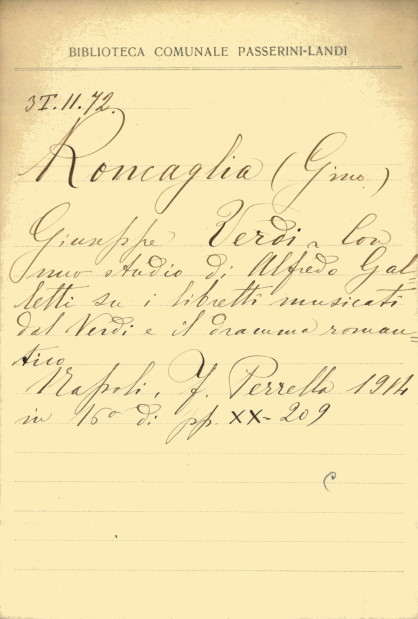 BIBLIOTECA COMUNALE PASSERINI-LANDI
3I.11.72.
Roncaglia (Gino)
Giuseppe Verdi. Con
uno studio di Alfredo Gal=
letti su i libretti musicati
dal Verdi e il dramma roman-
tico
Napoli, F. Perrella 1914
in 16° di pp. XX-209
C